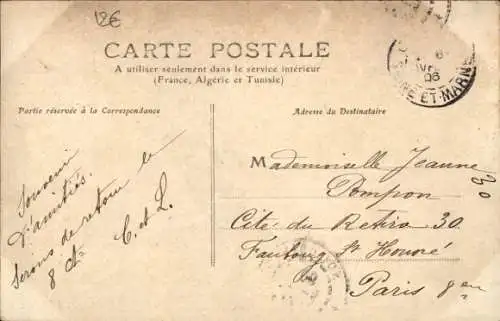 12€
CARTE POSTALE
A utiliser seulement dans le service intérieur
(France, Algérie et Tunisie)
Partie réservée à la Correspondance
Adresse du Destinataire
Souvenir
d'amitiés.
Serons de retour le
8 ct
C. et L.
Mademoiselle Jeanne
Pompon
Cité du Retiro 30
Faubourg St Honoré
Paris 8em
06
SEINE-ET-MARNE